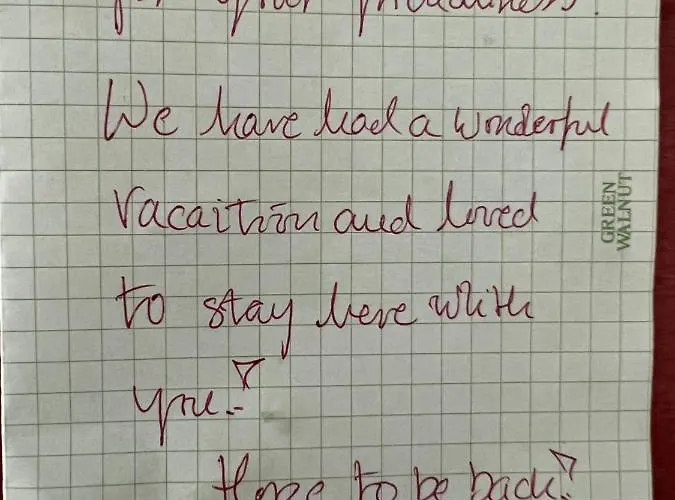 for your
We have had a wonderful
vacaition and loved
to stay here whith
you!
Hope to be back!
GREEN
WALNUT